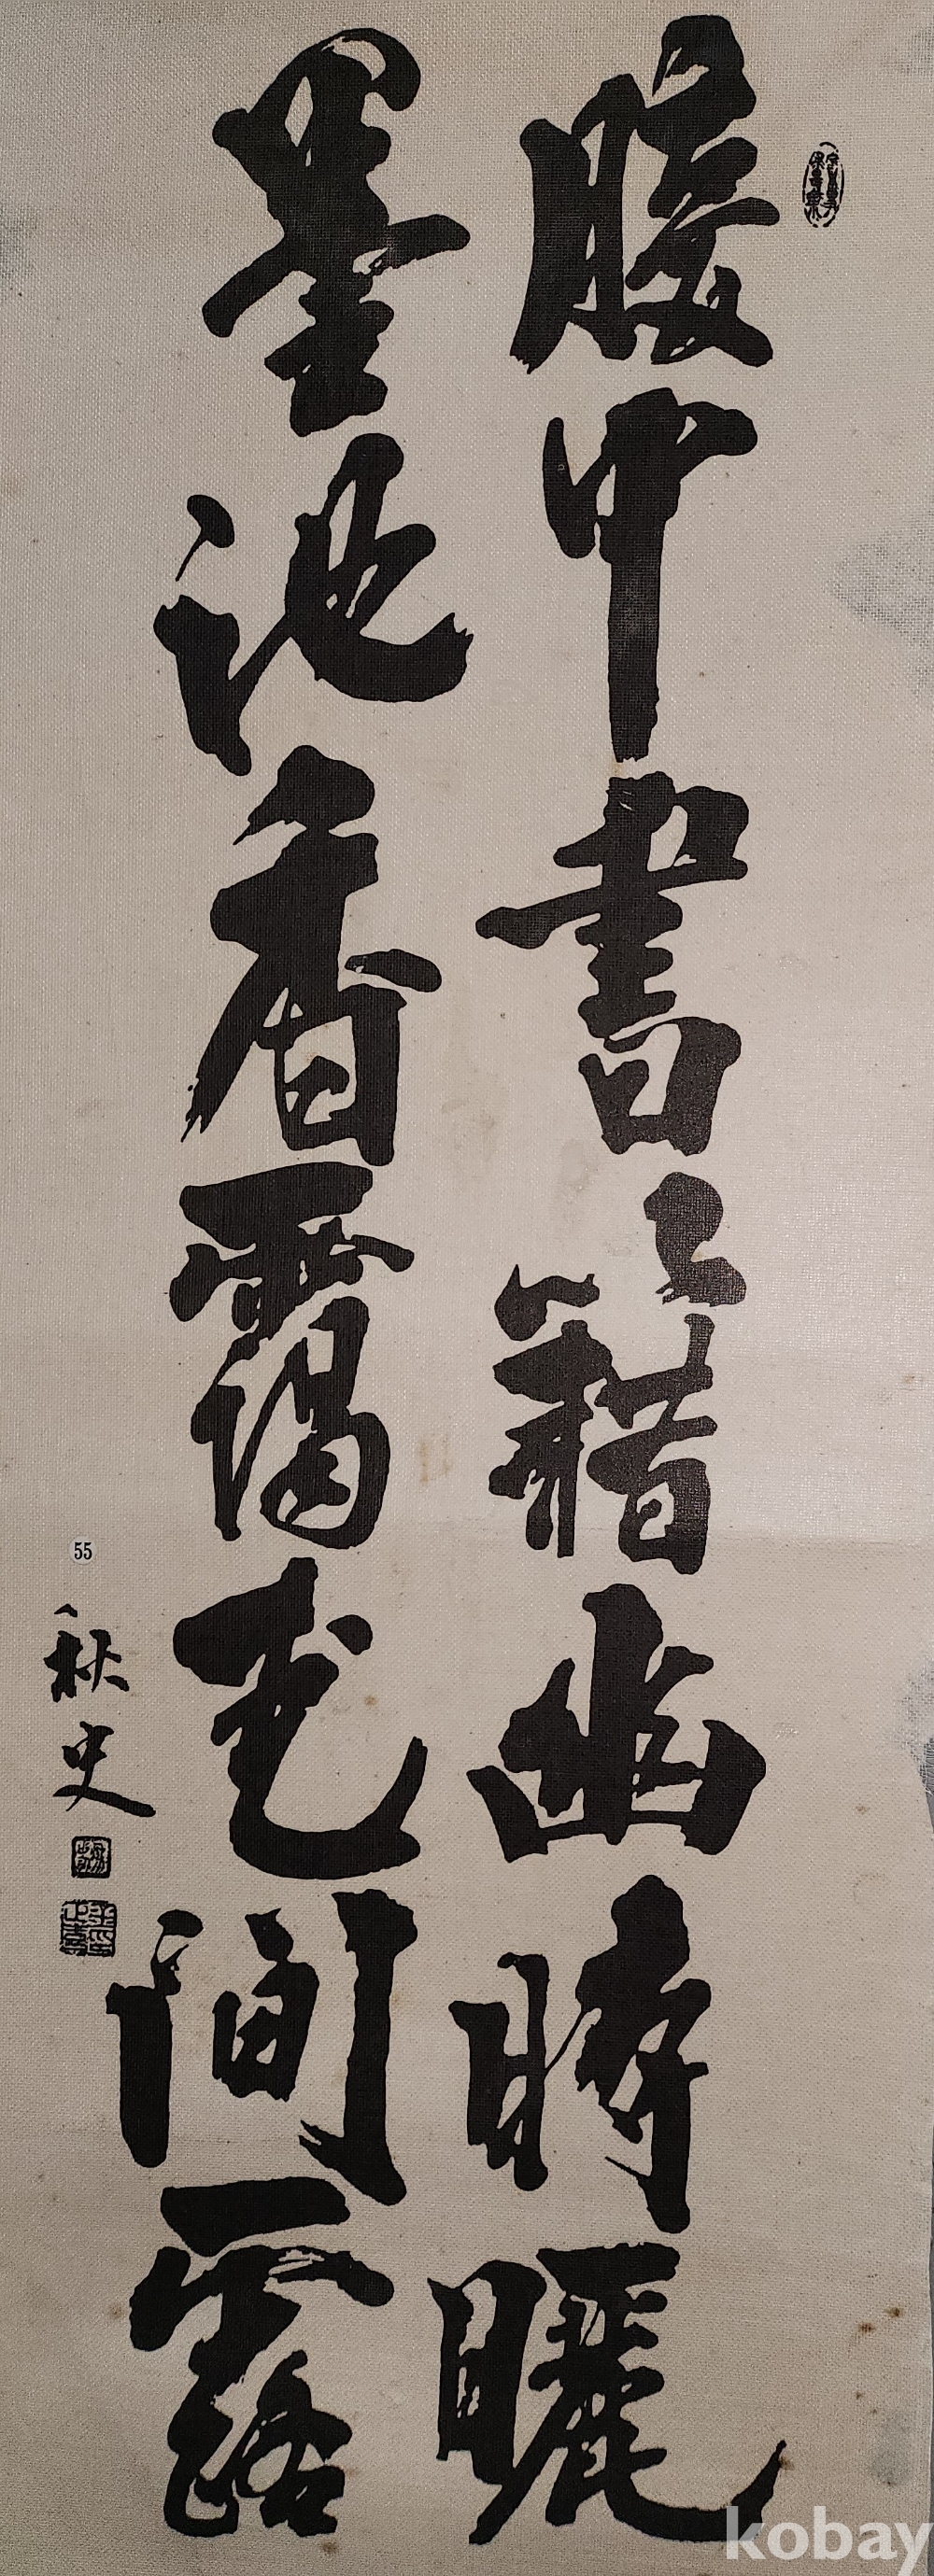 腹中書籍幽時曬
墨池香靄花間露
秋史
55
kobay